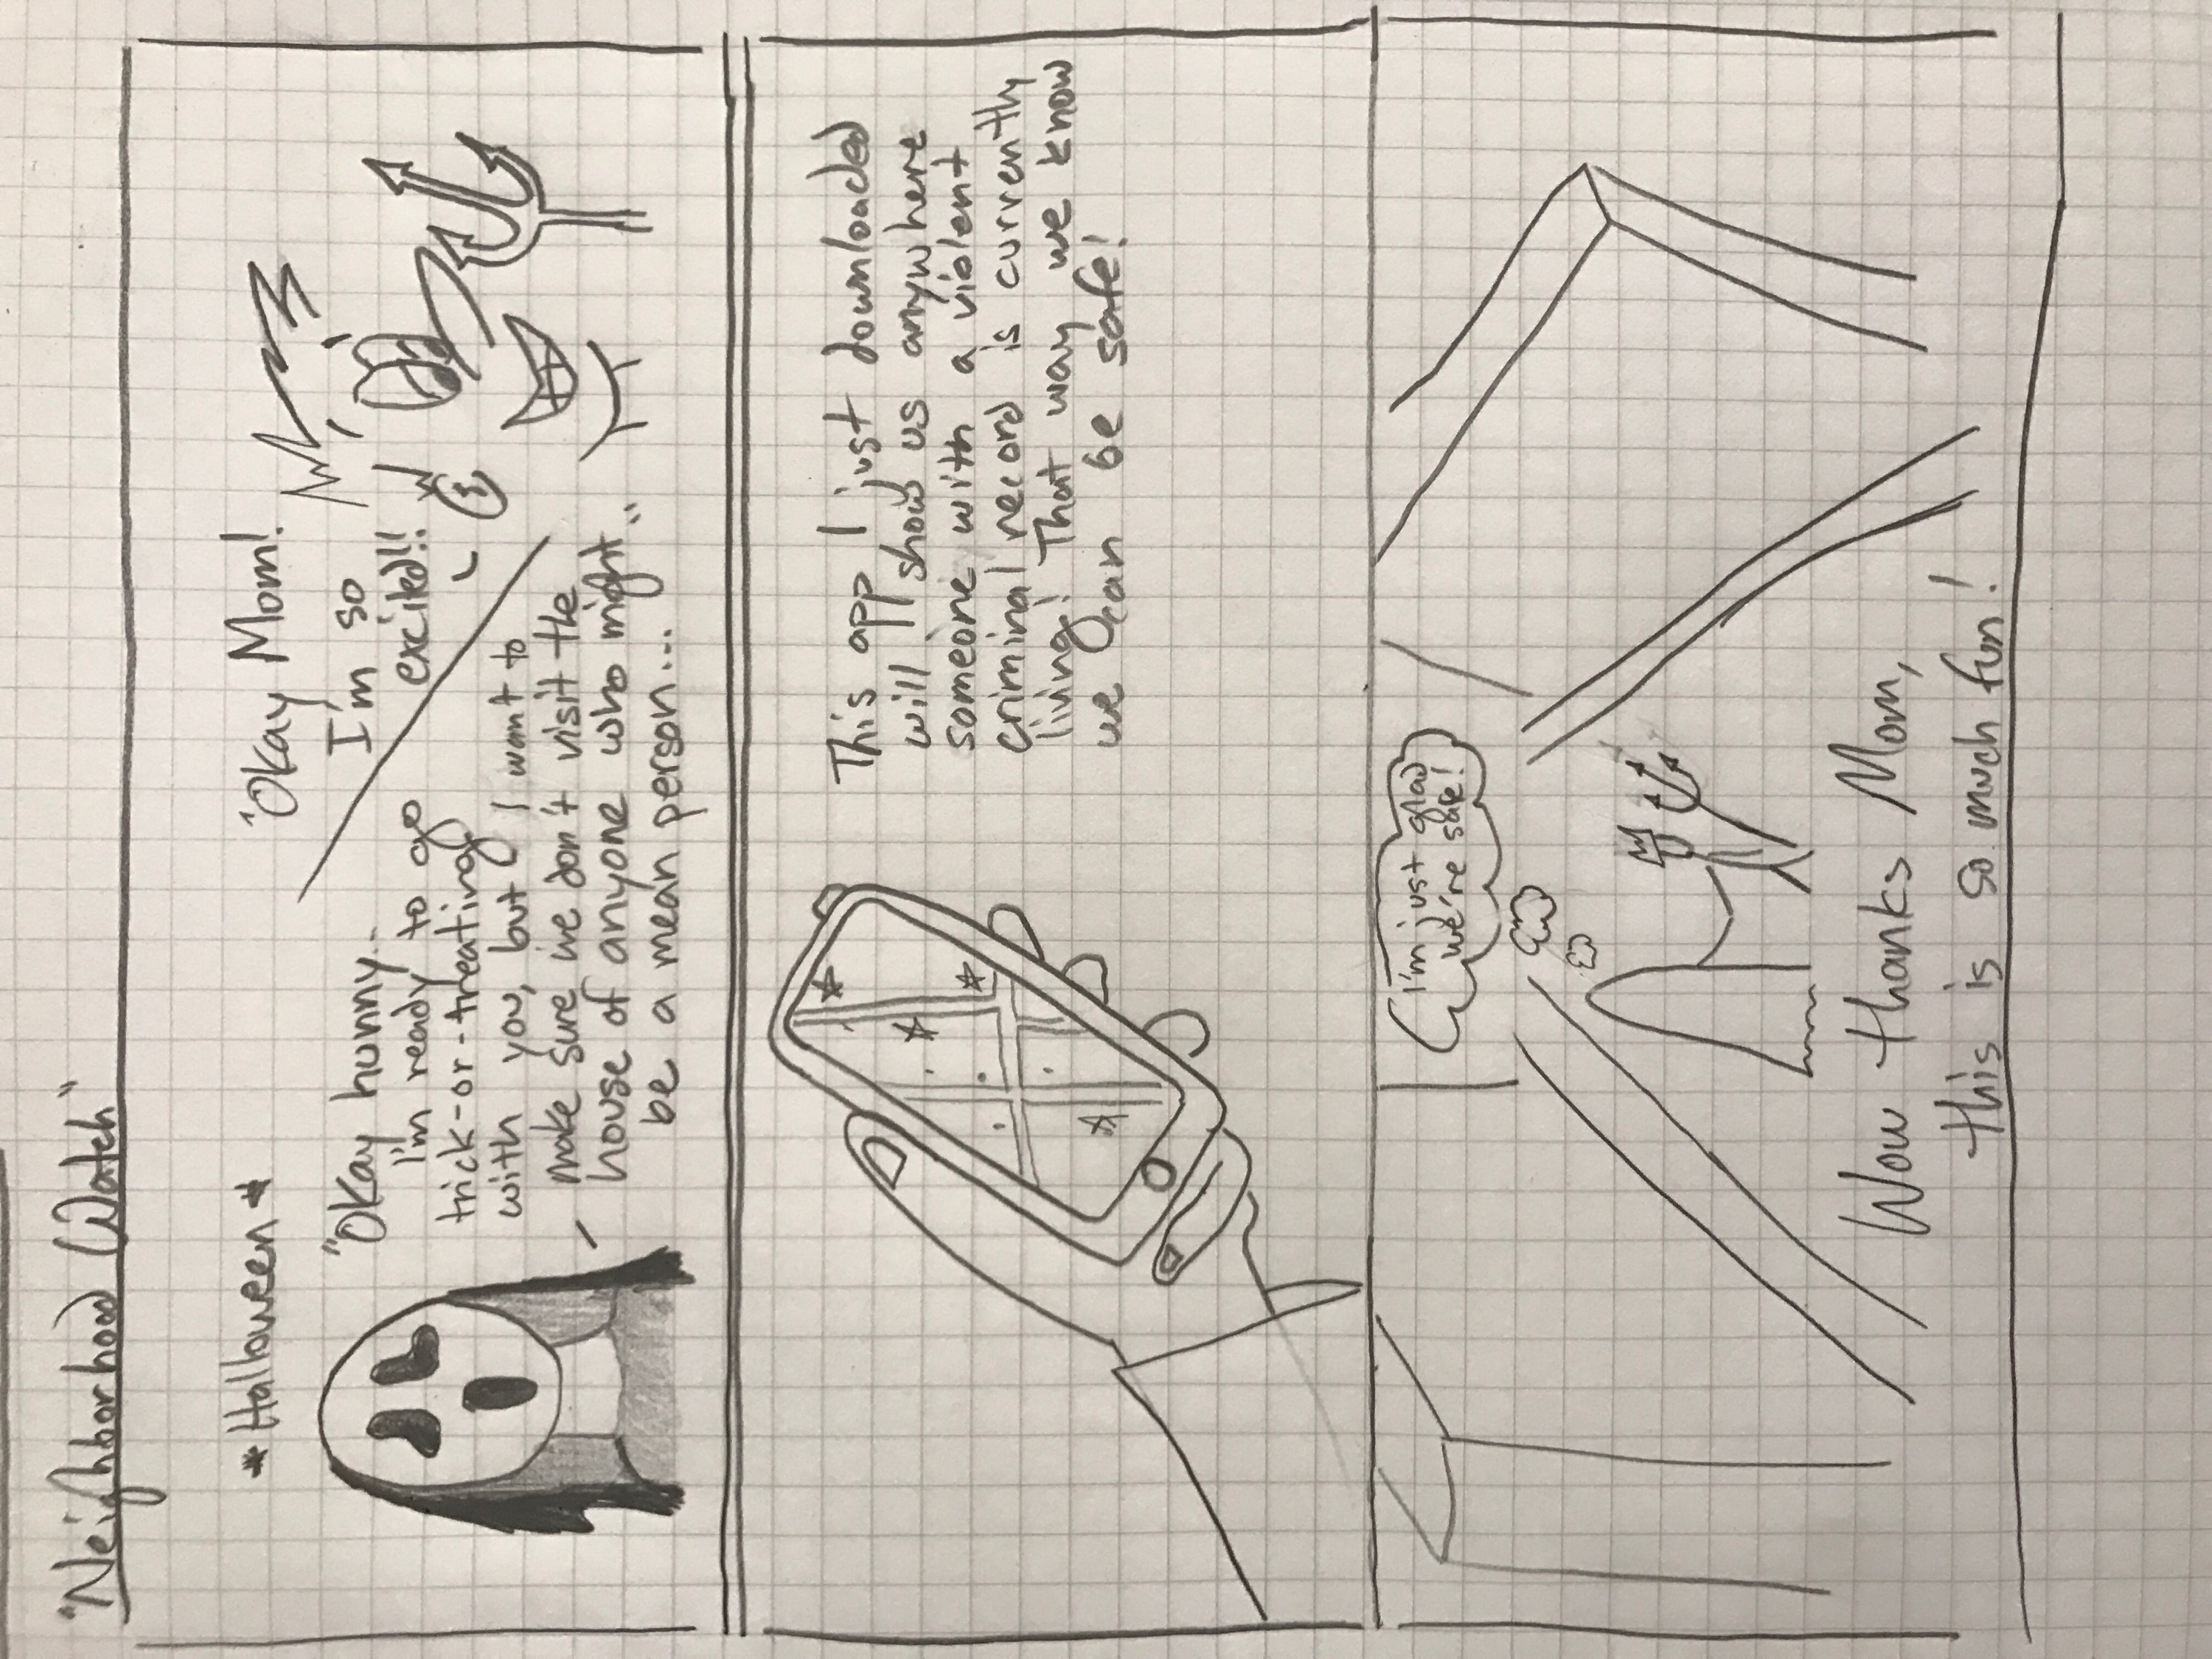 "Neighborhood Watch"
*Halloween*
"Okay hunny..
I'm ready to go
trick-or-treating
with you, but I want to
make sure we don't visit the
house of anyone who might
be a mean person..."
"Okay Mom!
I'm so
excited!!
This app I just downloaded
will show us anywhere
someone with a violent
criminal record is currently
living! That way we know
we can be safe!
I'm just glad
we're safe!
Wow thanks Mom,
this is so much fun!